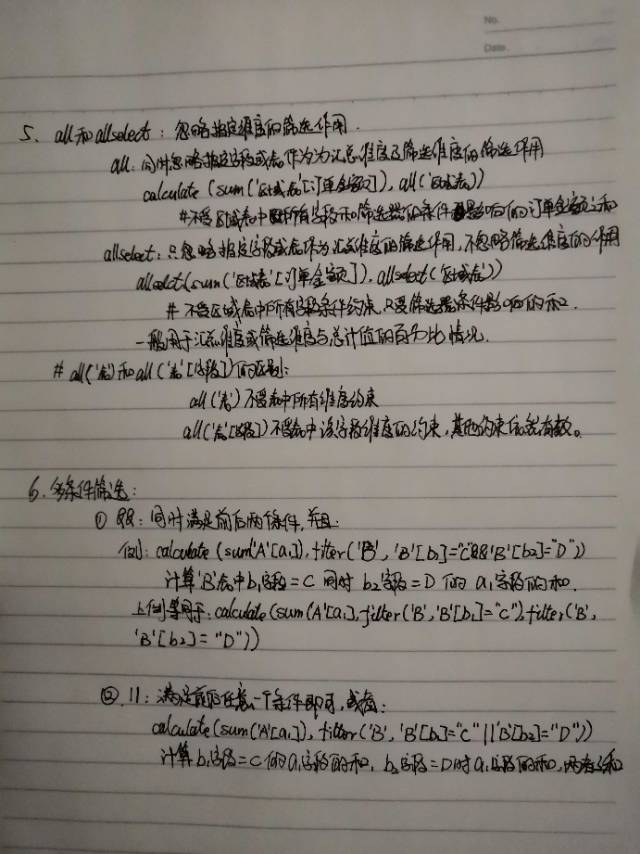 No.
Date.
5、all和allselect：忽略指定维度的筛选作用.
all：同时忽略指定字段或表作为汇总维度及筛选维度的筛选作用
calculate (sum('区域表'[订单金额]), all('区域表'))
#不受区域表中所有字段和筛选器的条件影响的订单金额之和
allselect：只忽略指定字段或表作为汇总维度的筛选作用，不忽略筛选维度的作用
allselect(sum('区域表'[订单金额]), allselect('区域表'))
# 不受区域表中所有字段条件约束，只受筛选器条件影响的和.
一般用于汇总维度或筛选维度与总计值的百分比情况.
# all('表')和all('表'[字段])的区别：
all('表')不受表中所有维度约束
all('表'[字段])不受表中该字段维度的约束，其他约束仍然有效。
6、多条件筛选：
① &&：同时满足前后两条件，并且：
例：calculate (sum('A'[a₁]), filter('B', 'B'[b₁]="C"&&'B'[b₂]="D"))
计算'B'表中b₁字段=C 同时 b₂字段=D 的 a₁字段的和.
上例等用于：calculate(sum('A'[a₁], filter('B','B'[b₁]="C"), filter('B',
'B'[b₂]="D"))
② ||：满足前后任意一个条件即可，或者：
calculate(sum('A'[a₁]), filter('B', 'B'[b₁]="C"||'B'[b₂]="D"))
计算b₁字段=C的a₁字段的和，b₂字段=D时a₁字段的和，两者之和